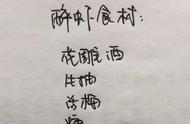 醉虾食材:
花雕酒
生抽
话梅
糖